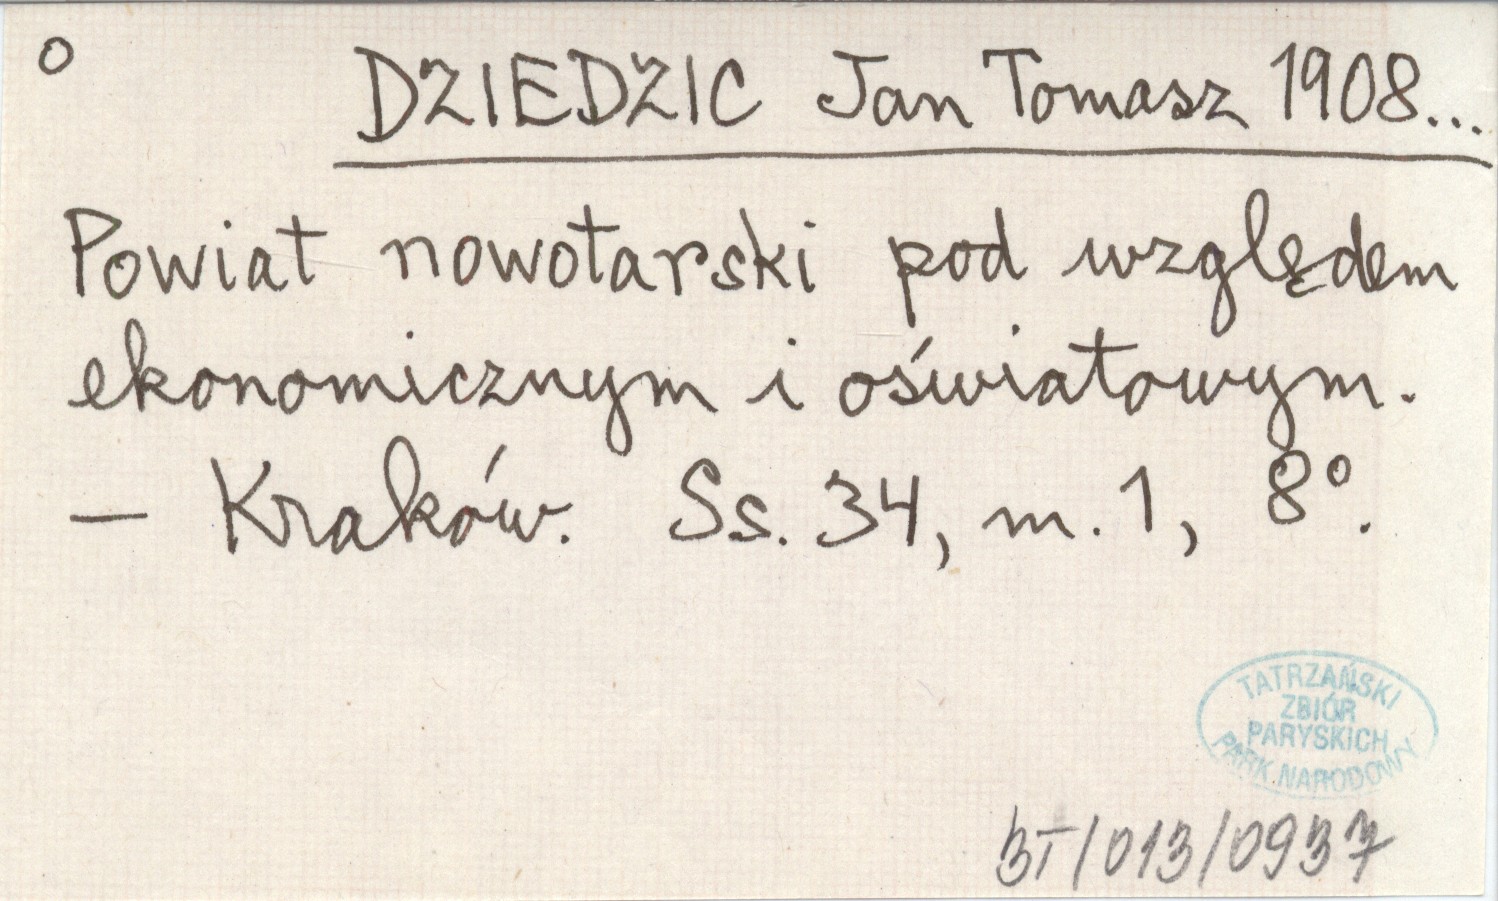 o DZIEDZIC Jan Tomasz 1908...
Powiat nowotarski pod względem
ekonomicznym i oświatowym.
– Kraków. Ss. 34, m. 1, 8°.
TATRZAŃSKI
ZBIÓR
PARYSKICH
PARK NARODOWY
BT/013/0937